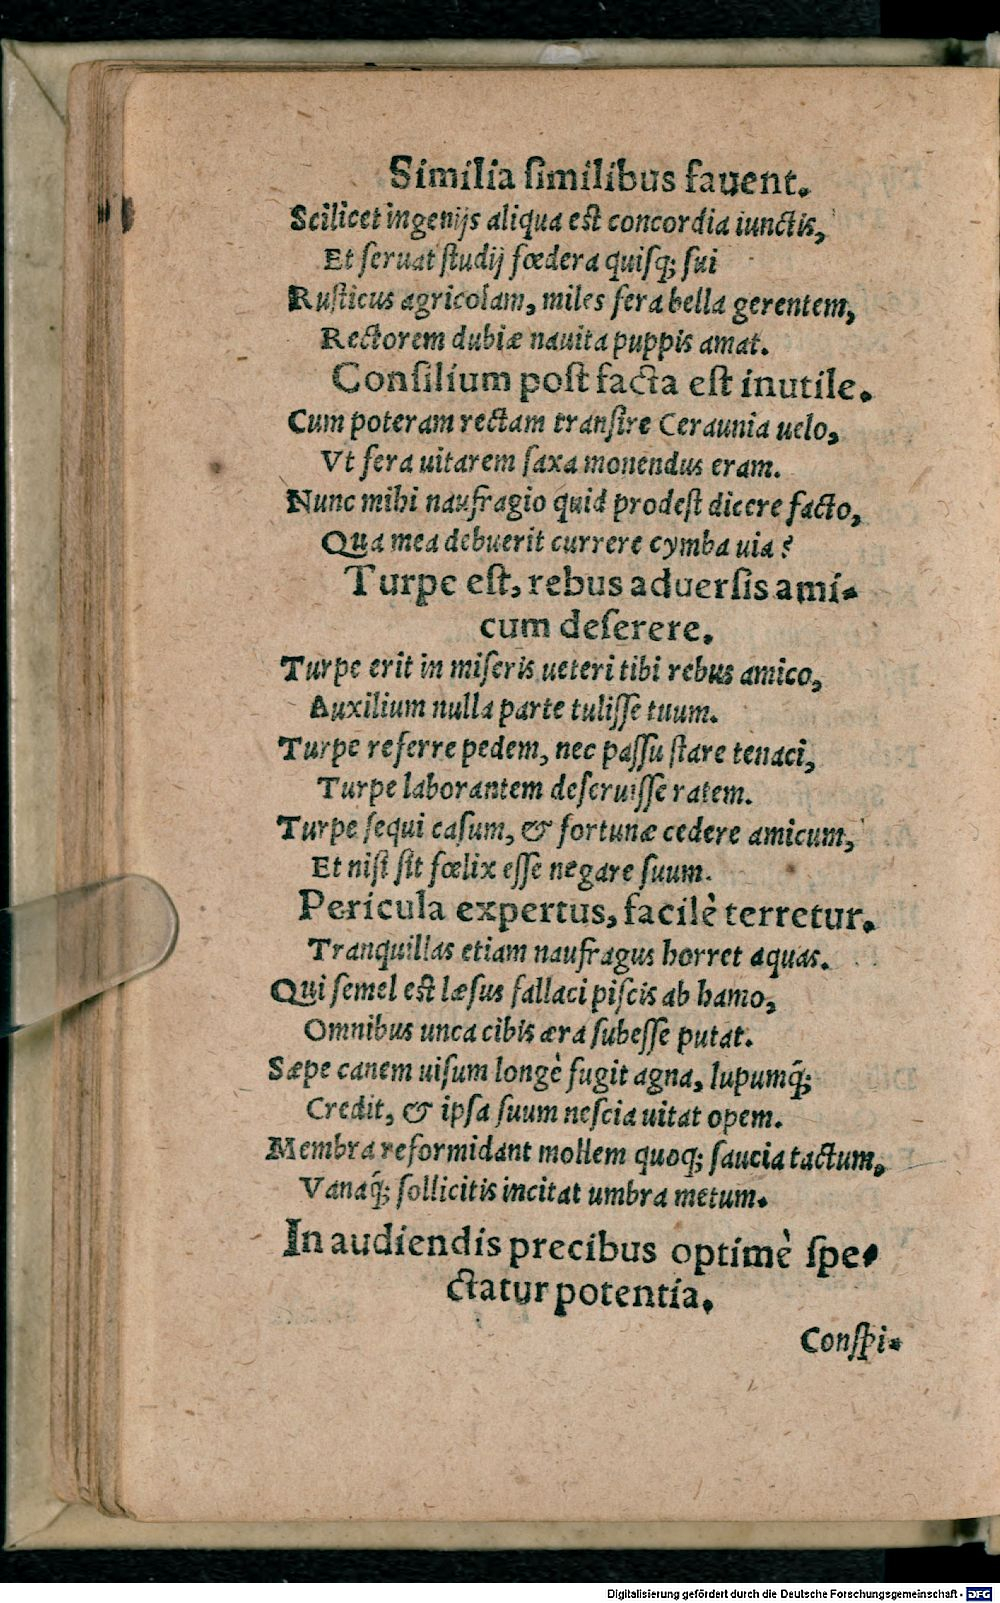 Similia ſimilibus fauent.
Scilicet ingenijs aliqua est concordia iunctis,
Et ſeruat ſtudij fœdera quiſq; ſui
Ruſticus agricolam, miles fera bella gerentem,
Rectorem dubiæ nauita puppis amat.
Conſilium poſt facta eſt inutile.
Cum poteram rectam tranſire Ceraunia uelo,
Vt fera uitarem ſaxa monendus eram.
Nunc mihi naufragio quid prodeſt dicere facto,
Qua mea debuerit currere cymba uia?
Turpe eſt, rebus aduerſis ami-
cum deſerere.
Turpe erit in miſeris ueteri tibi rebus amico,
Auxilium nulla parte tuliſſe tuum.
Turpe referre pedem, nec paſſu ſtare tenaci,
Turpe laborantem deſeruiſſe ratem.
Turpe ſequi caſum, & fortunæ cedere amicum,
Et niſi ſit fœlix eſſe negare ſuum.
Pericula expertus, facilè terretur.
Tranquillas etiam naufragus horret aquas.
Qui ſemel est læſus fallaci piſcis ab hamo,
Omnibus unca cibis æra ſubeſſe putat.
Sæpe canem uiſum longè fugit agna, lupumq́;
Credit, & ipſa ſuum neſcia uitat opem.
Membra reformidant mollem quoq; ſaucia tactum,
Vanaq́; ſollicitis incitat umbra metum.
In audiendis precibus optimè ſpe-
ctatur potentia.
Conſpi-
Digitalisierung gefördert durch die Deutsche Forschungsgemeinschaft - DFG